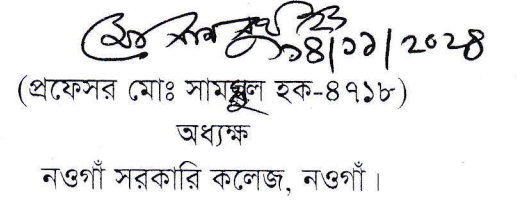 ১৪/১১/২০২৪
(প্রফেসর মোঃ সামছুল হক-৪৭১৮)
অধ্যক্ষ
নওগাঁ সরকারি কলেজ, নওগাঁ।